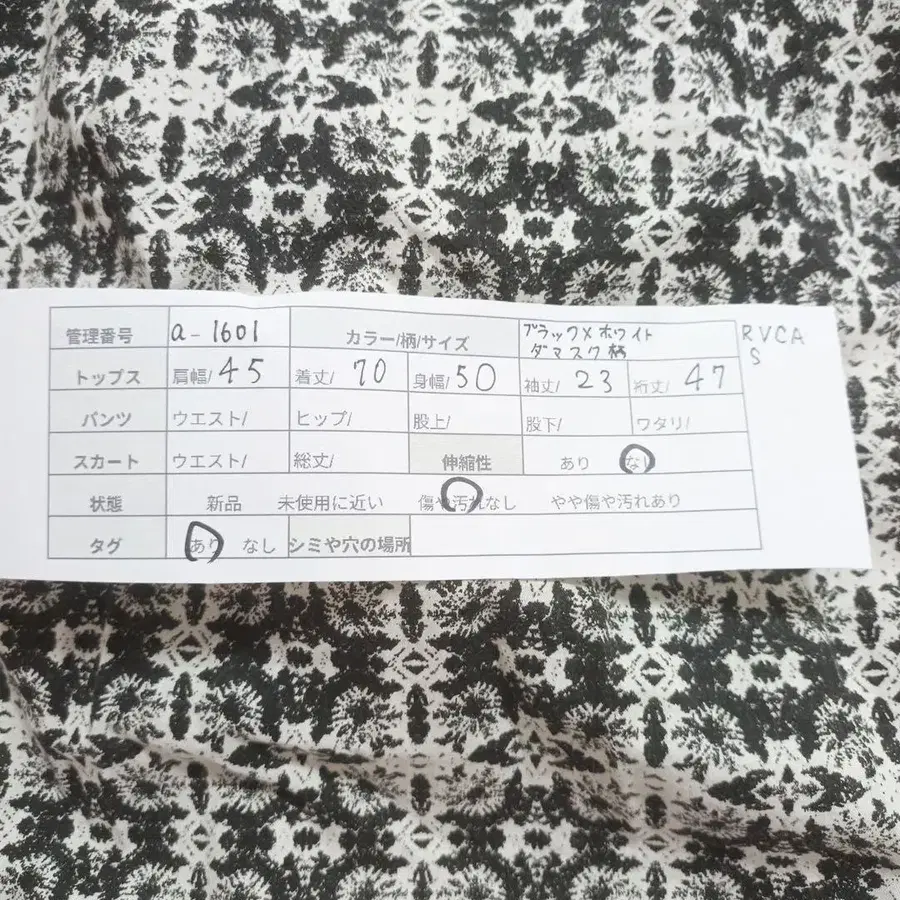 管理番号 a-1601 カラー/柄/サイズ ブラック×ホワイト RVCA
ダマスク柄 S
トップス 肩幅/45 着丈/70 身幅/50 袖丈/23 裄丈/47
パンツ ウエスト/ ヒップ/ 股上/ 股下/ ワタリ/
スカート ウエスト/ 総丈/ 伸縮性 あり なし
状態 新品 未使用に近い 傷や汚れなし やや傷や汚れあり
タグ あり なし シミや穴の場所